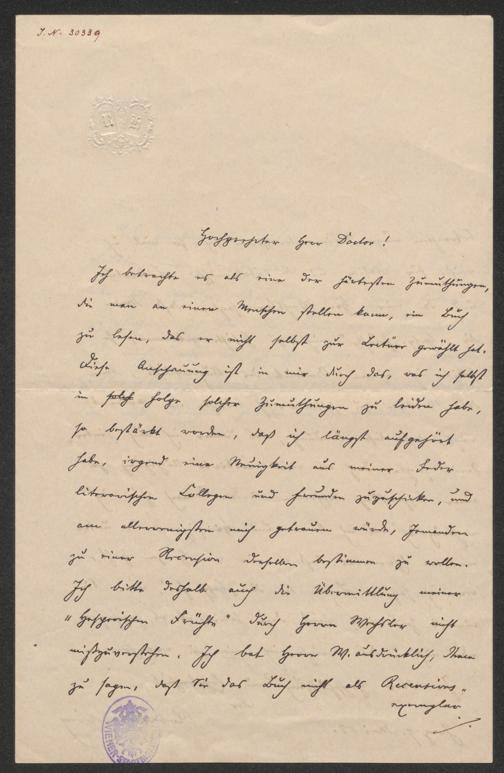 J. N. 30339
Hochgeehrter Herr Doctor!
Ich betrachte es als eine der härtesten Zumuthungen,
die man an einen Menschen stellen kann, ein Buch
zu lesen, das er nicht selbst zur Lectüre gewählt hat.
Diese Anschauung ist in mir durch das, was ich selbst
in Folge solcher Zumuthungen zu leiden habe,
so bestärkt worden, daß ich längst aufgehört
habe, irgend eine Neuigkeit aus meiner Feder
literarischen Collegen und Freunden zuzuschicken, und
am allerwenigsten mich getrauen würde, Jemanden
zu einer Recension derselben bestimmen zu wollen.
Ich bitte deshalb auch die Übermittlung meiner
"Hesperischen Früchte" durch Herrn Wechsler nicht
mißzuverstehen. Ich bat Herrn W. ausdrücklich, Ihnen
zu sagen, daß Sie das Buch nicht als Recensions-
exemplar
WIENER